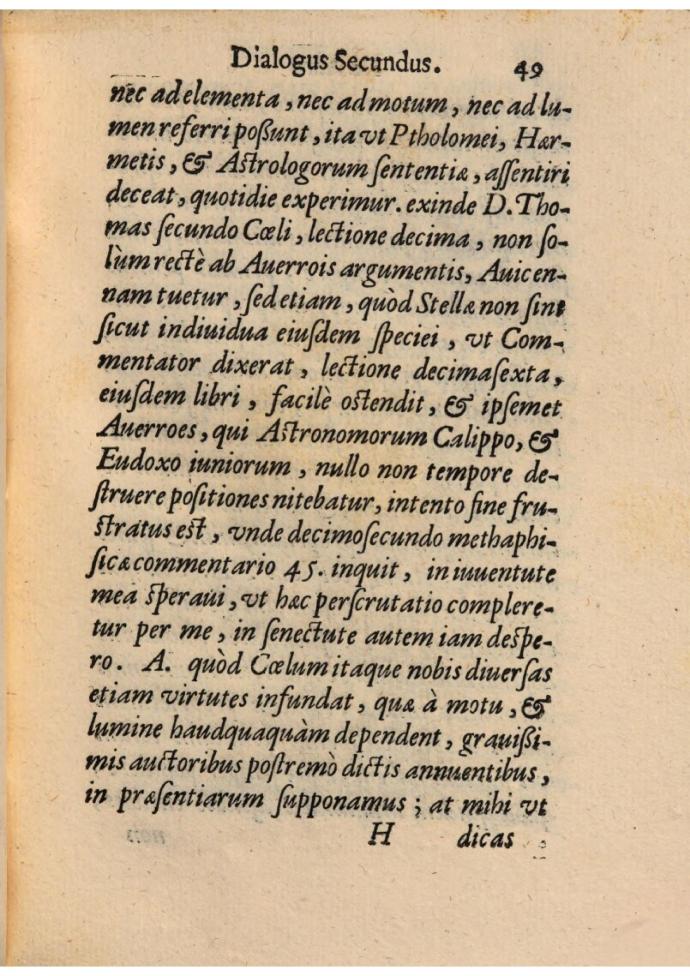 Dialogus Secundus. 49
nec ad elementa, nec ad motum, nec ad lu-
men referri poßunt, ita vt Ptholomei, Hær-
metis, & Astrologorum ſententiæ, aſſentiri
deceat, quotidie experimur. exinde D. Tho-
mas ſecundo Cœli, lectione decima, non ſo-
lùm rectè ab Auerrois argumentis, Auicen-
nam tuetur, ſed etiam, quòd Stellæ non ſint
ſicut indiuidua eiuſdem ſpeciei, vt Com-
mentator dixerat, lectione decimaſexta,
eiuſdem libri, facilè oſtendit, & ipſemet
Auerroes, qui Aſtronomorum Calippo, &
Eudoxo iuniorum, nullo non tempore de-
ſtruere poſitiones nitebatur, intento fine fru-
ſtratus eſt, vnde decimoſecundo methaphi-
ſicæ commentario 45. inquit, in iuuentute
mea ſperaui, vt hæc perſcrutatio complere-
tur per me, in ſenectute autem iam deſpe-
ro. A. quòd Cœlum itaque nobis diuerſas
etiam virtutes infundat, quæ à motu, &
lumine haudquaquàm dependent, grauißi-
mis auctoribus poſtremò dictis annuentibus,
in præſentiarum ſupponamus; at mihi vt
H dicas